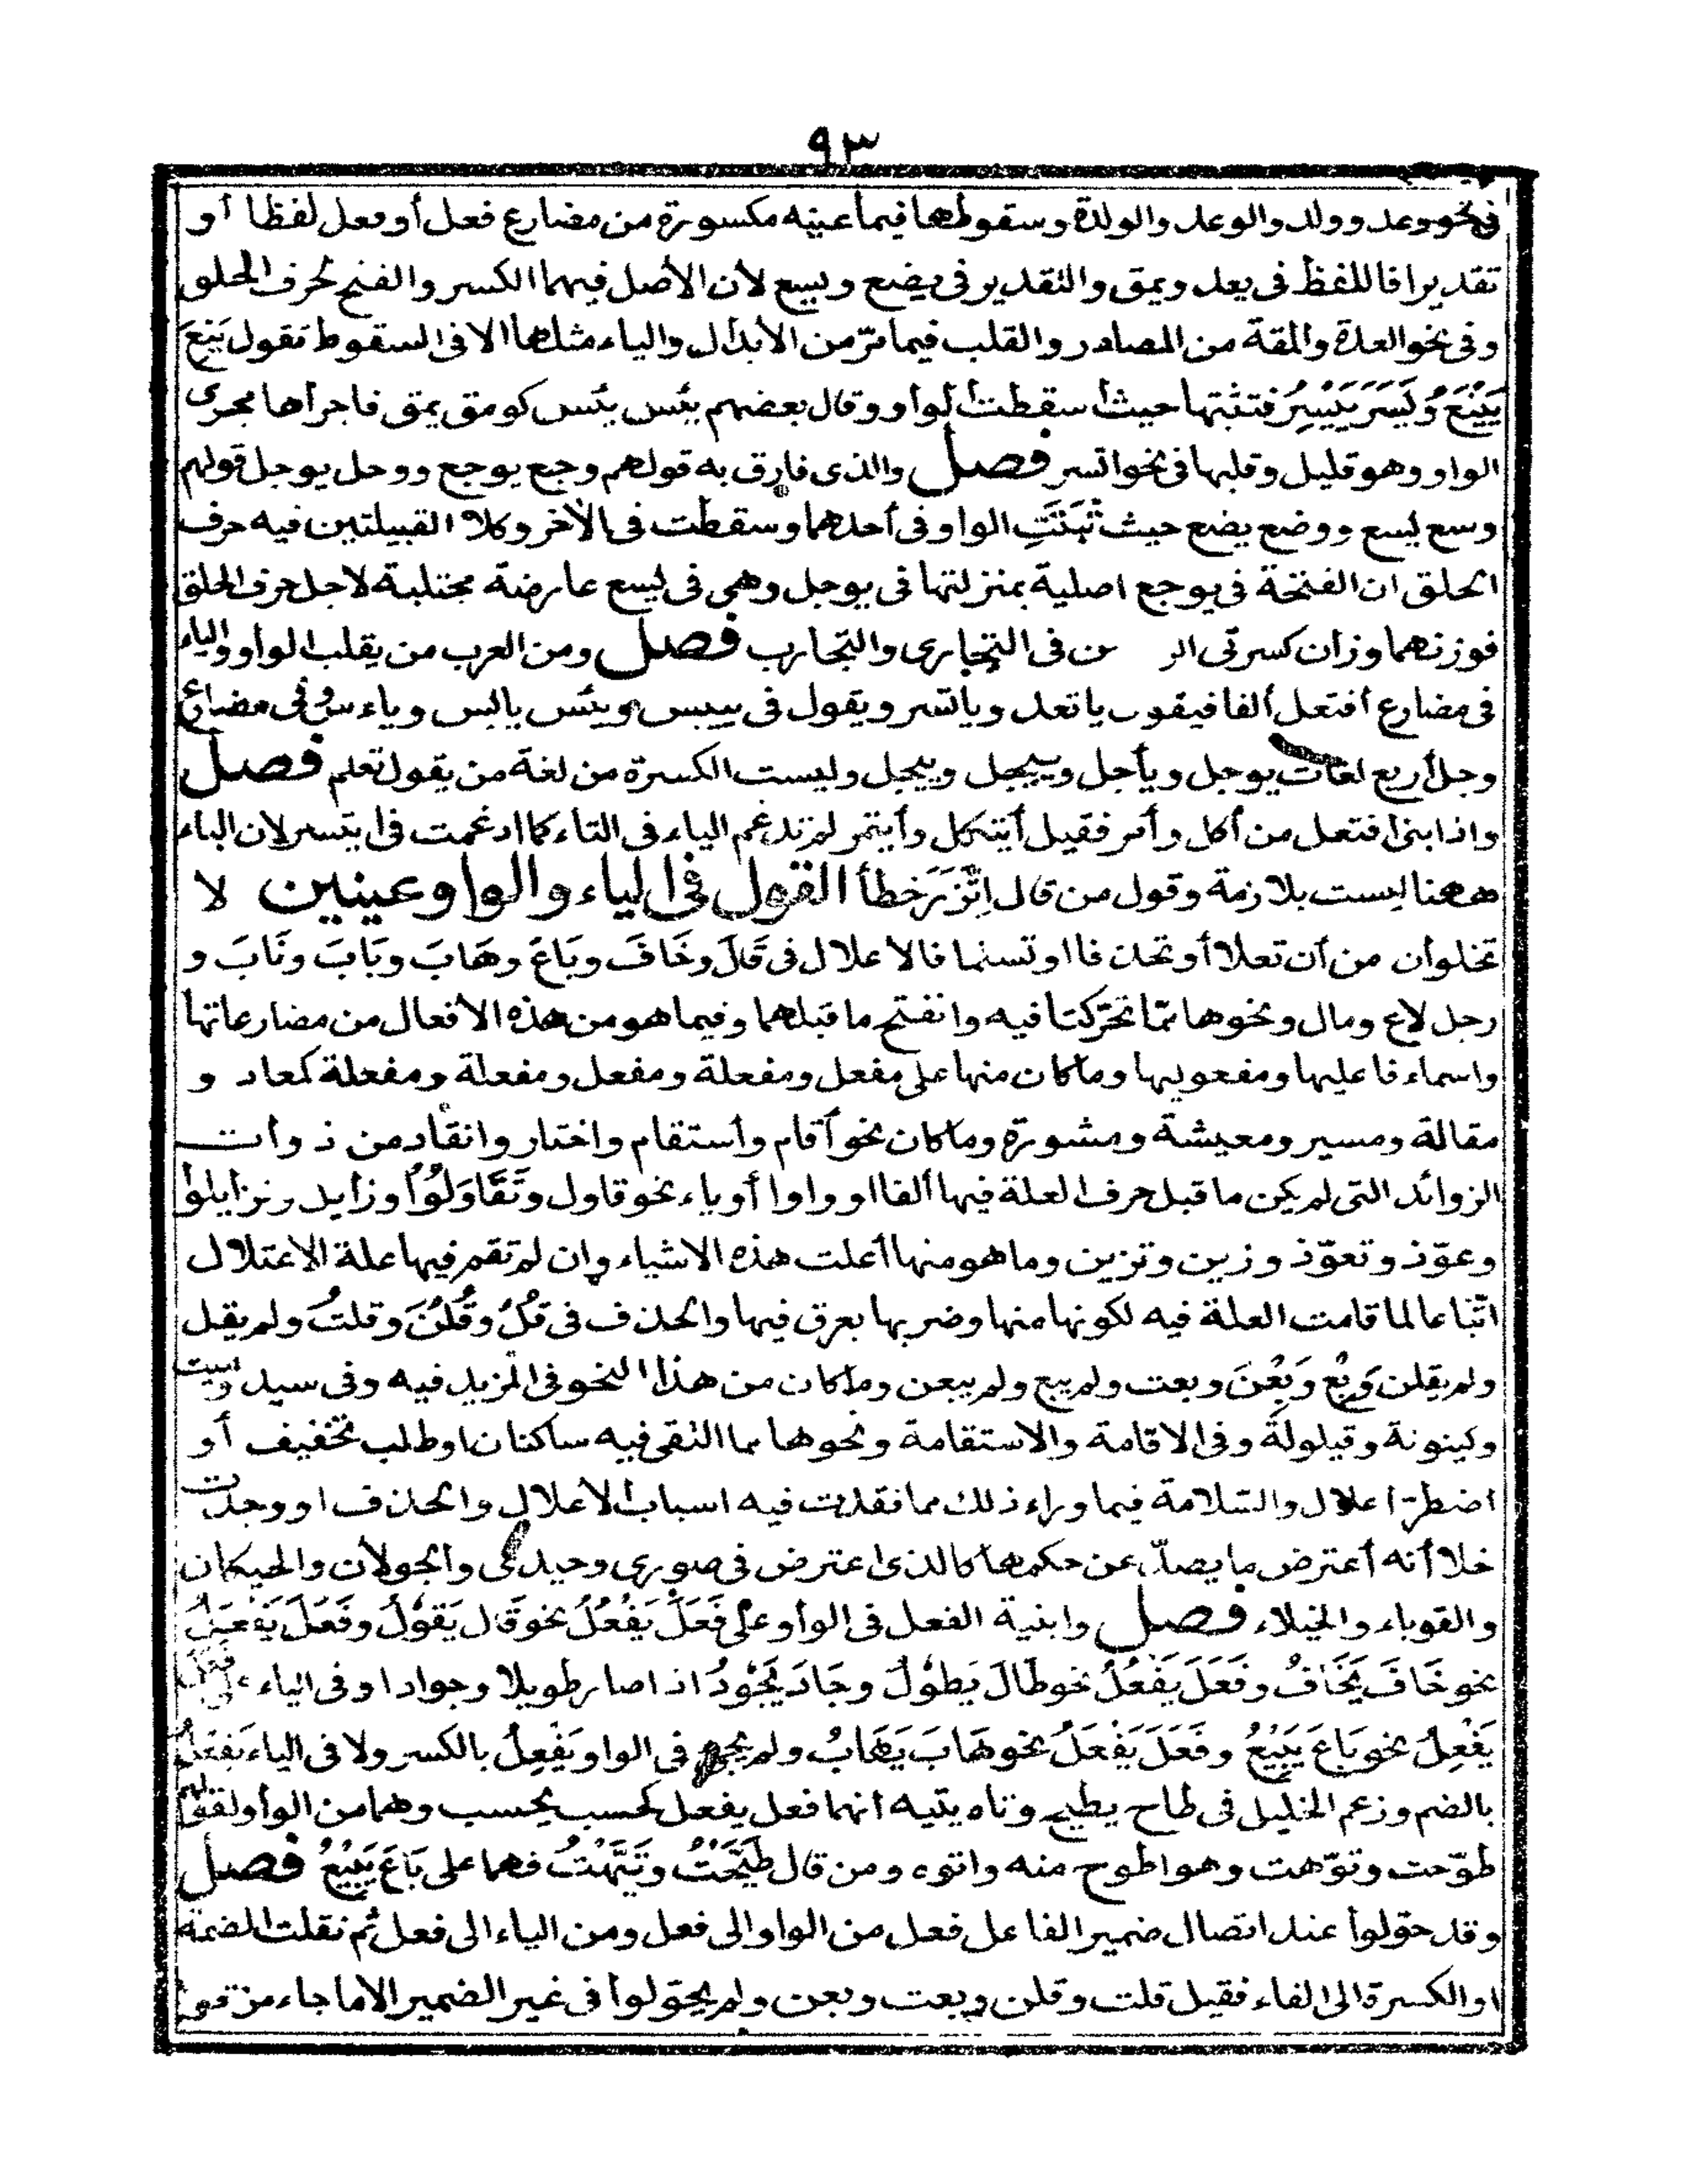 ٩٣
فى نحو وعد وولد والوعد والولدة وسقوطها فيما عينه مكسورة من مضارع فعل أو فعل لفظا أو
تقديرا فاللفظ فى يعد ويمق والتقدير فى يضع ويسع لأن الأصل فيهما الكسر والفتح لحرف الحلق
وفى نحو العدة والمقة من المصادر والقلب فيما مرّ من الأبدال والياء مثلها الا فى السقوط تقول يَنَعَ
يَيْنَعُ ويَسَرَ يَيْسِرُ فتثبتها حيث اسقطت الواو وقال بعضهم يئس يئس كومق يمق فاجراها مجرى
الواو وهو قليل وقلبها فى نحو اتسر فصل والذى فارق به قولهم وجع يوجع ووحل يوحل قولهم
وسع يسع ووضع يضع حيث ثبتت الواو فى أحدهما وسقطت فى الآخر وكلا القبيلتين فيه حرف
الحلق ان الفتحة فى يوجع اصلية بمنزلتها فى يوجل وهى فى يسع عارضة مجتلبة لاجل حرف الحلق
فوزنهما وزان كسرتى الر ن فى التجارى والتجارب فصل ومن العرب من يقلب الواو والياء
فى مضارع أفتعل ألفا فيقول ياتعد وياتسر ويقول فى ييبس وييئس يابس وياءس وفى مضارع
وجل أربع لغات يوجل ويأجل وييجل وييجل وليست الكسرة من لغة من يقول تعلم فصل
واذا بنى افتعل من أكل وأمر فقيل أيتكل وأيتمر لم تدغم الياء فى التاء كما ادغمت فى ايتسر لان الياء
ههنا ليست بلازمة وقول من قال اِتَّزَرَ خطأ القول فى الياء والواو عينين لا
تخلوان من أن تعلا أو تحذفا او تسلما فالاعلال فى قَالَ وخَافَ وبَاعَ وهَابَ وبَابَ ونَابَ و
رجل لاع ومال ونحوها مّما تحرّكتا فيه وانفتح ما قبلهما وفيما هو من هذه الأفعال من مضارعاتها
واسماء فاعليها ومفعوليها وما كان منها على مفعل ومفعلة ومفعل ومفعلة ومفعلة كمعاد و
مقالة ومسير ومعيشة ومشورة وما كان نحو أقام وأستقام واختار وانقاد من ذوات
الزوائد التى لم يكن ما قبل حرف العلة فيها ألفا او واوا أو ياء نحو قاول وتَقَاوَلُوْا وزايد وتزايلوا
وعوّذ وتعوّذ وزين وتزين وما هو منها أعلت هذه الاشياء وإن لم تقم فيها علة الاعتلال
اتّباعا لما قامت العلة فيه لكونها منها وضربها بعرق فيها والحذف فى قُلْ وقُلْنَ وقلتُ ولم يقل
ولم يقلن وَبِعْ وَبِعْنَ وبعت ولم يبع ولم يبعن وما كان من هذا النحو فى المزيد فيه وفى سيد وميت
وكينونة وقيلولة وفى الاقامة والاستقامة ونحوها مما التقى فيه ساكنان او طلب تخفيف أو
اضطرّ اعلال والسّلامة فيما وراء ذلك مما فقدت فيه اسباب الاعلال والحذف او وجدت
خلا أنه أعترض ما يصدّ عن حكمها كالذى اعترض فى صورى وحيدى والجولان والحيكان
والقوباء والخيلاء فصل وابنية الفعل فى الواو على فَعَلَ يَفْعُلُ نحو قَالَ يَقُوْلُ وفَعَلَ يَفْعَلُ
نحو خَافَ يَخَافُ وفَعَلَ يَفْعُلُ نحو طَالَ يَطُوْلُ وجَادَ يَجُوْدُ اذا صار طويلا وجوادا وفى الياء فعل
يَفْعِلُ نحو بَاعَ يَبِيْعُ وفَعَلَ يَفْعَلُ نحو هَابَ يَهَابُ ولم يجئ فى الواو يَفْعِلُ بالكسر ولا فى الياء يَفْعُلُ
بالضم وزعم الخليل فى طاح يطيح وتاه يتيه انهما فعل يفعل كحسب يحسب وهما من الواو لقولهم
طوّحت وتوّهت وهو اطوح منه واتوه ومن قال طَيَّحْتُ وتَيَّهْتُ فهما على بَاعَ يَبِيْعُ فصل
وقد حوّلوا عند اتصال ضمير الفاعل فعل من الواو الى فعل ومن الياء الى فعل ثم نقلت الضمة
او الكسرة الى الفاء فقيل قلت وقلن وبعت وبعن ولم يحوّلوا فى غير الضمير الا ما جاء من قول